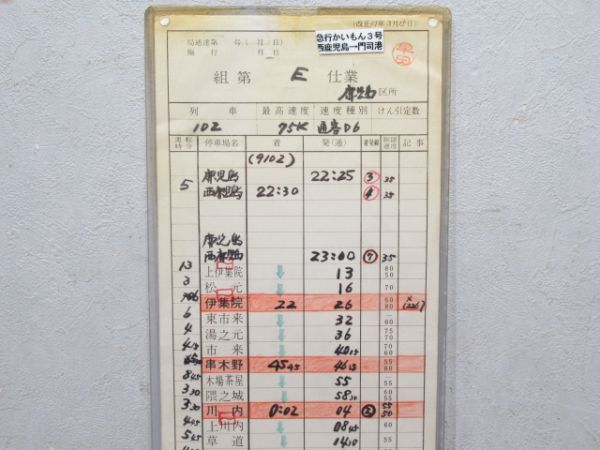 (改正47年3月15日)
急行かいもん3号
西鹿児島→門司港
局達達第 号( 月 日)
施行 月 日
組第 E 仕業
鹿児島区所
列車 最高速度 速度種別 けん引定数
102 95K 通客D6
運転時分 停車場名 着 発(通) 着発線 制限速度 記事
(9102)
5 鹿児島 22:25 3 35
西鹿児島 22:30 4 35
鹿児島
西鹿児島 23:00 7 35
13 上伊集院 13 80 50
3 松元 16 70
伊集院 22 26 60 80
6 東市来 32 60
4 湯之元 36 75 70
4 15 市来 40 15 80
串木野 45 45 46 15 80
8 45 木場茶屋 55 55
3 30 隈之城 58 30
3 30 川内 0:02 04 2 55 50
4 45 上川内 08 45 60
5 45 草道 14 30 55